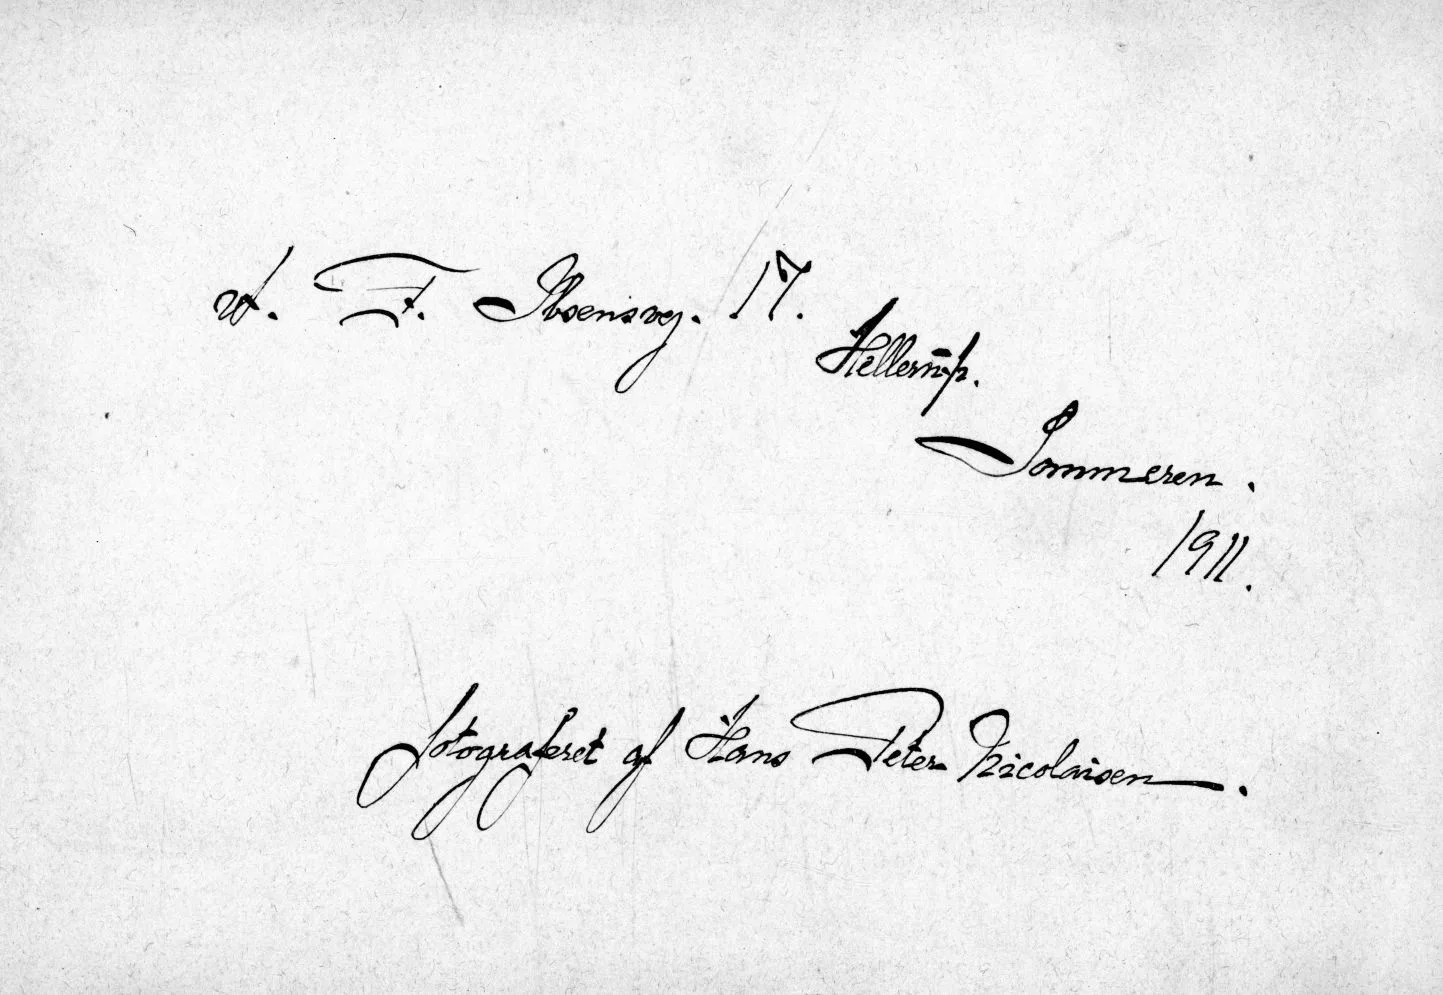 F. Ibsensvej. 17.
Hellerup.
Sommeren.
1911.
fotograferet af Hans Peter Nicolaisen.